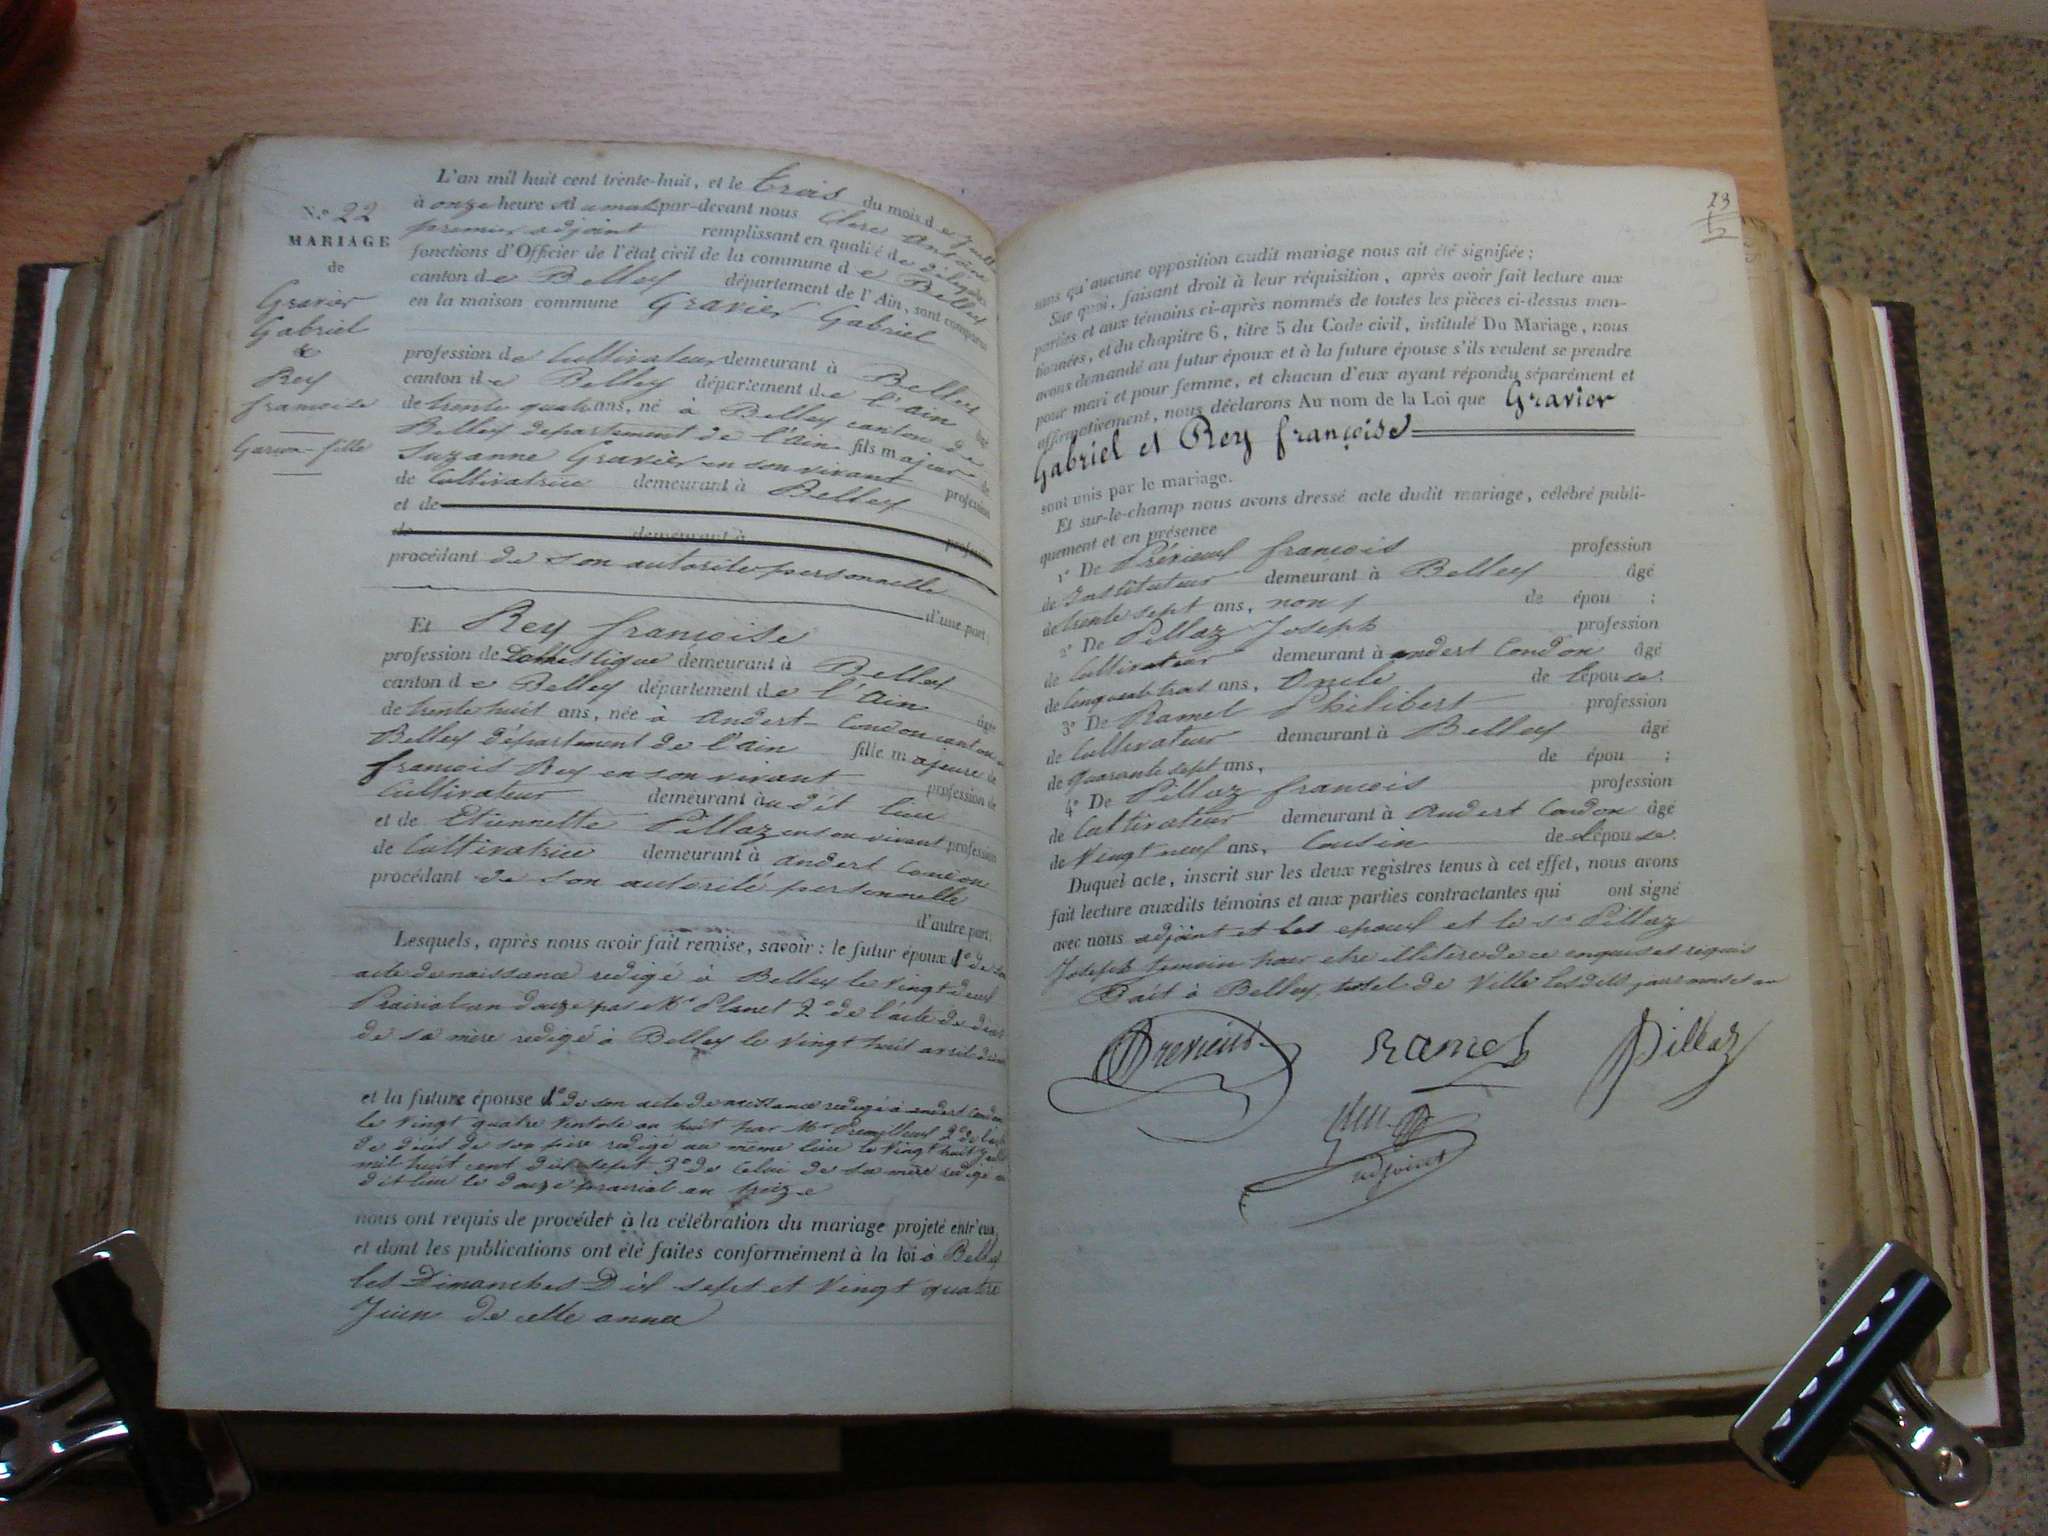 N.º 22
MARIAGE
de
Gravier
Gabriel
&
Rey
francoise
Garçon - fille
L'an mil huit cent trente-huit, et le trois du mois de Juillet
à onze heure du matin par-devant nous Clerc Antoine
premier adjoint remplissant en qualité de délégué
fonctions d'Officier de l'état civil de la commune de Belley
canton de Belley département de l'Ain, sont comparus
en la maison commune Gravier Gabriel
profession de Cultivateur demeurant à Belley
canton de Belley département de l'ain âgé
de trente quatre ans, né à Belley canton de
Belley département de l'ain fils majeur de
Suzanne Gravier en son vivant profession
de Cultivatrice demeurant à Belley
et de
de demeurant à profession
procédant de son autorité personnelle
d'une part;
Et Rey françoise
profession de Domestique demeurant à Belley
canton de Belley département de l'Ain âgée
de trente huit ans, née à Andert-Condon canton de
Belley département de l'ain fille majeure de
francois Rey en son vivant profession de
Cultivateur demeurant audit lieu
et de Etiennette Pillaz en son vivant profession
de Cultivatrice demeurant à andert Condon
procédant de son autorité personnelle
d'autre part;
Lesquels, après nous avoir fait remise, savoir: le futur époux 1º de son
acte de naissance redigé à Belley le vingt deux
Prairial an douze par Mr Planet 2º de l'acte de décès
de sa mère redigé à Belley le vingt huit avril
et la future épouse 1º de son acte de naissance redigé à andert Condon
le vingt quatre ventose an huit par Mr 2º de l'acte
de décès de son père redigé au même lieu le vingt huit
mil huit cent dix sept 3º de Celui de sa mère redigé au
dit lieu le douze prairial an treize
nous ont requis de procéder à la célébration du mariage projeté entr'eux,
et dont les publications ont été faites conformément à la loi à Belley
les Dimanches Dix sept et vingt quatre
Juin de cette anneé
23
1
2
sans qu'aucune opposition audit mariage nous ait été signifiée;
Sur quoi, faisant droit à leur réquisition, après avoir fait lecture aux
parties et aux témoins ci-après nommés de toutes les pièces ci-dessus men-
tionnées, et du chapitre 6, titre 5 du Code civil, intitulé Du Mariage, nous
avons demandé au futur époux et à la future épouse s'ils veulent se prendre
pour mari et pour femme, et chacun d'eux ayant répondu séparément et
affirmativement, nous déclarons Au nom de la Loi que Gravier
Gabriel et Rey françoise
sont unis par le mariage.
Et sur-le-champ nous avons dressé acte dudit mariage, célébré publi-
quement et en présence
1º De Prévieux francois profession
de Instituteur demeurant à Belley âgé
de trente sept ans, non de épou ;
2º De Pillaz Joseph profession
de Cultivateur demeurant à andert Condon âgé
de Cinquante trois ans, Oncle de l'épouse;
3º De Ramel Philibert profession
de Cultivateur demeurant à Belley âgé
de quarante sept ans, de épou ;
4º De Pillaz francois profession
de Cultivateur demeurant à Andert Condon âgé
de vingt neuf ans, Cousin de l'épouse.
Duquel acte, inscrit sur les deux registres tenus à cet effet, nous avons
fait lecture auxdits témoins et aux parties contractantes qui ont signé
avec nous adjoint et les epoux et le sr Pillaz
Joseph temoin pour etre illitere de ce enquis et requis
Fait à Belley, hotel de Ville Lesdits jour mois et an
Previeux
Ramel
Pillaz
adjoint